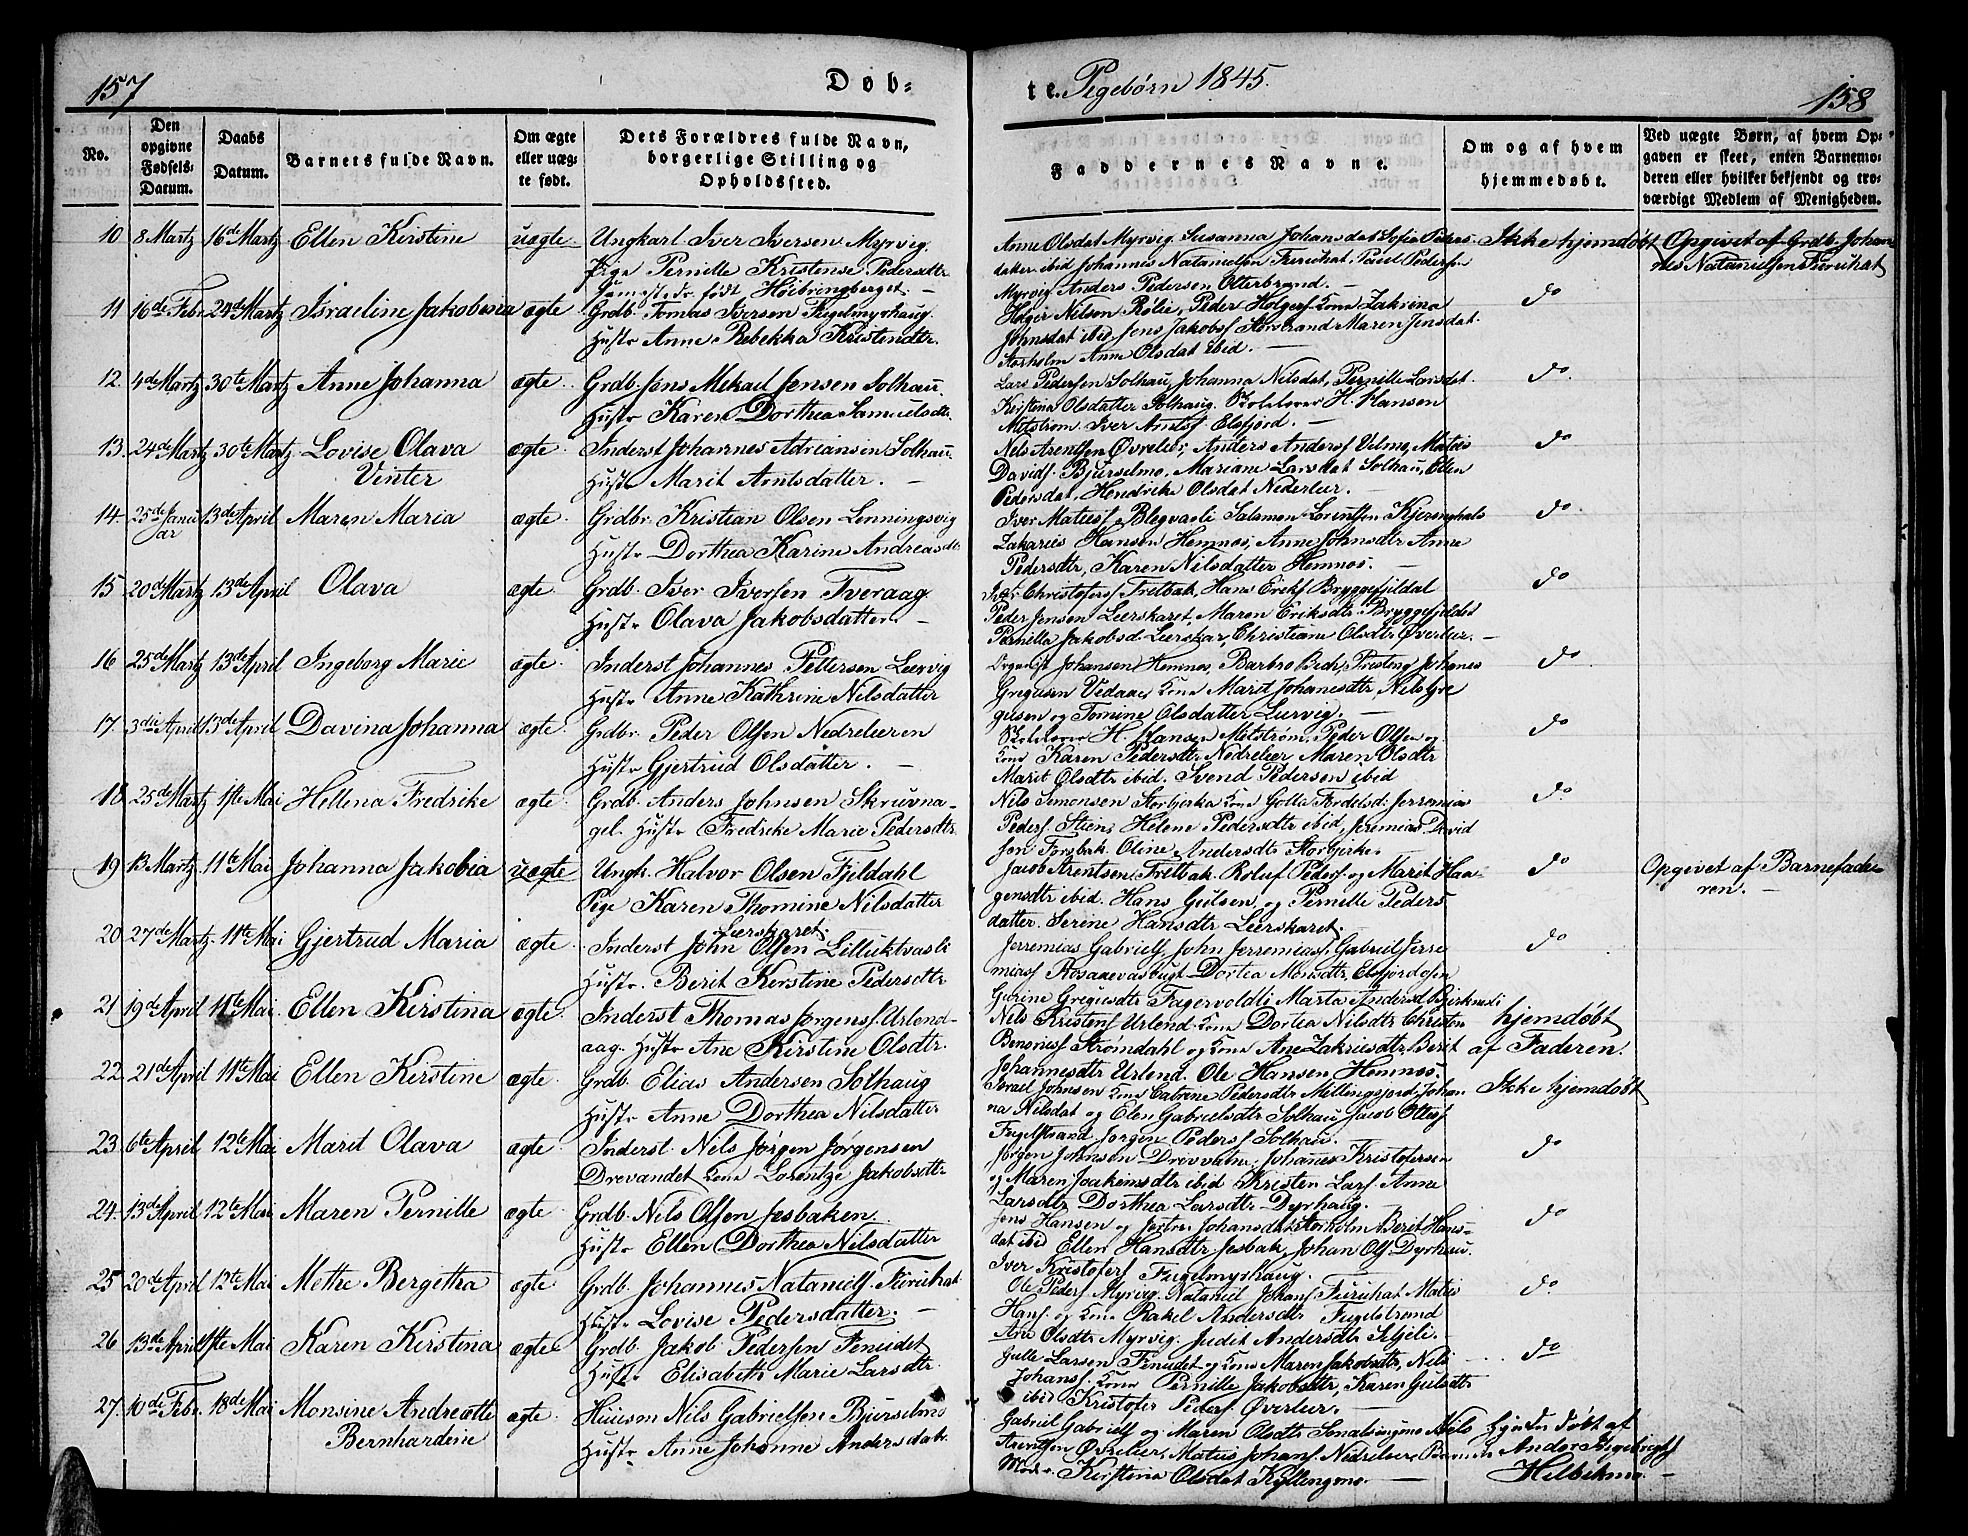 157
Døb-
No.
Den opgivne Fødsels-Datum.
Daabs Datum.
Barnets fulde Navn.
Om ægte eller uæg-te født.
Dets Forældres fulde Navn, borgerlige Stilling og Opholdssted.
10 8 Martz 16de Martz Ellen Kirstine uægte Ungkarl Iver Iversen Myrvig.
Pige Pernille Kristense Pedersdtr
født Høibringberget. –
11 16de Febr 24de Martz Israeline Jakobona ægte Grdb. Tomas Iversen Fugelmyrhaug.
Hustr Anne Rebekka Kristendtr.
12. 4de Martz 30te Martz Anne Johanna ægte. Grdb. Jens Mekael Jensen Solhau
Hustr Karen Dorthea Samuelsdtr.
13. 24de Martz 30te Martz Lovise Olava ægte Inderst Johannes Adriansen Solhau.
Vinter Hustr Marit Arntsdatter. –
14 25de Janu 13de April Maren Maria ægte. Grdbr. Kristian Olsen Lenningsvig
ar Hustr Dorthea Karine Andreasdtr
15 20de Martz 13de April Olava ægte Grdb. Iver Iversen Tveraag.
Hustr Olava Jakobsdatter. –
16 25de Martz 13de April Ingeborg Marie ægte. Inderst Johannes Pettersen Leervig
Hustr Anne Kathrine Nilsdatter
17. 3die April 13de April Davina Johanna ægte. Grdbr. Peder Olsen Nedreleeren
Hustr Gjertrud Olsdatter. –
18 25de Martz 1ste Mai Hellena Fredrike ægte. Grdb. Anders Johnsen Skruvna-
gel. Hustr Fredrike Marie Pedersdtr.
19 13 Martz. 11te Mai Johanna Jakobia uægte Ungk. Halvor Olsen Fjeldahl
Pige Karen Thomine Nilsdatter
Leerskaret.
20. 27de Martz. 11te Mai Gjertrud Maria ægte. Inderst John Olsen Lilluktvasli
Hustr. Berit Kerstine Pedersdtr.
21 19de April 11te Mai. Ellen Kirstina ægte. Inderst Thomas Jørgens. Urland-
aag. Hustr Ane Kirstine Olsdtr.
22. 21de April 11te Mai Ellen Kirstine ægte. Grdb. Elias Andersen Solhaug
Hustr Anne Dorthea Nilsdatter
23. 6te April 12te Mai Marit Olava ægte. Inderst. Nils Jørgen Jørgensen
Drevandet Kone Lorentze Jakobsdtr
24. 13de April 12te Mai Maren Pernille ægte Grdb. Nils Olsen Jesbaken.
Hustr Ellen Dorthea Nilsdatter
25 20de April 12te Mai Methe Bergetha ægte Grdb. Johannes Nataniels. Fürühat
Hustr Lovise Pedersdatter. –
26 13de April 1ste Mai Karen Kirstina ægte Grdb. Jakob Pedersen Finudet
Hustr Elisabeth Marie Larsdtr.
27. 10de Febr. 18de Mai Monsine Andreette ægte. Huusm Nils Gabrielsen Bjurselmo
Bernhardine Hustr Anne Johanne Andersdatr.
te. Pigebørn 1845.
158
Faddernes Navne.
Om og af hvem hjemmedøbt.
Ved uægte Børn, af hvem Op-gaven er skeet, enten Barnemo-deren eller hvilket bekjendt og tro-værdigt Medlem af Menigheden.
Anne Olsdat Myrvig. Susanna Johansdat Sofie Peders- Ikke hjemdøbt Opgivet af Grdb. Johan
datter ibid Johannes Natanielsen Furuhat. Povel Pedersen nes Natanielsen Furuhat
Myrvig. Anders Pedersen Otterbrand. –
Holger Nilsen Rølie, Peder Holgers Kone Zakrina do
Johnsdat ibid Jens Jakobs. Storstrand Maren Jensdat.
Storholm Anne Olsdat ibid. –
Lars Pedersen Solhau, Johanna Nilsdat, Pernille Larsdat. do.
Kirstina Olsdatter Solhaug. Skolelærer H. Hansen
Melstrøm. Iver Arntsf. Elsfjord. –
Nils Arentsen Øvreleir, Anders Anders Velmo, Matis do
Davids. Bjurselmo, Mariane Larsdat Solhau, Ellen
Pedersdat, Hendrike Olsdat Nederleir. –
Iver Matiesf Blegvasli Salamon Lorentsen Kjerringhals do
Zakarias Hansen Hemnes, Anne Johnsdtr Anne
Pedersdtr, Karen Nilsdatter Hemnes. –
Iver Christofers. Fretbak, Hans Eriks. Bryggefjeldal do
Peder Jensen Leerskaret, Maren Eriksdtr Bryggefjeldal
Pernilla Jakobsd. Leerskar, Christiane Olsdtr Øverleir. –
Organist Johansen Hemnes, Barbro Bech, Presteng Johanes do.
Gregusen Vedaae Kone Marit Johanesdtr, Nils Gre
gusen og Tomine Olsdatter Lurvig. –
Skolelærer H. Hansen Melstrøm, Peder Olsen og do
Kone Karen Pedersdtr Nedreleer Maren Olsdtr
Marit Olsdtr ibid. Svend Pedersen ibid
Nils Simonsen Storbjerka Kone Golla Fordelsd. Jerremias do.
Peders. Stien, Helene Pedersdtr ibid, Jeremias David
sen Forsbak. Oline Andersdtr Storbjerk.
Jacob Arentsen Fretbak. Roluf Peders. og Marit Haa- do Opgivet af Barnefade-
gensdtr ibid. Hans Gulsen, og Pernille Peders ren. –
datter. Serine Hansdtr Leerskaret.
Jerremias Gabriels, John Jerremias. Gabriel Jerre do
mias Rosaaevasbugt Dortea Monsdtr, Elsfjordosen
Gurine Gregusdtr Fagervoldli Marta Andersd. Bjerkmoli
Nils Kristens Urlend. Kone Dortea Nilsdtr Christen hjemdøbt
Benonies Strømdahl og Kone Ane Zakriesdtr, Berit af Faderen.
Johannesdtr Urlend. Ole Hansen Hemnes.
Israel Johnsen Kone Catrine Pedersdtr Millingsjord. Johan- Ikke hjemdøbt
na Nilsdat og Elen Gabrielsdtr Solhau, Jacob Olles.
Fugelstrand Jørgen Peders. Solhau.
Jørgen Johnsen Drevvatne, Johannes Kristofersen do
og Maren Joakimsdtr ibid Kristen Lars. Anne
Larsdtr Dorthea Larsdtr Dyrhaug.
Jens Hansen og Johansdat Storholm Berit Hans- do
dat ibid Ellen Hansdtr Jesbak, Johan Ols. Dyrhau.
Iver Kristofers Fugelmyrhaug.
Ole Peders. Myrvig. Nataniel Johans Furuhat Matis do.
Hans. og Kone Rakel Andersdtr Fugelstrand
Ane Olsdtr Myrvig. Judit Andersdtr Skjeli. –
Julle Larsen Finudet og Kone Maren Jakobsdtr, Nils do
Johans. Kone Pernille Jakobsdtr, Karen Gulsdtr
ibid Kristofer Peders. Øverleir. –
Gabriel Gabriels og Maren Olsdtr Nils døbt af
Arentsen Øvreleir, Matis Johans. Nedreleer Barnets
Moder Kirstina Olsdat Kyllingmo. – Helbekmo. –